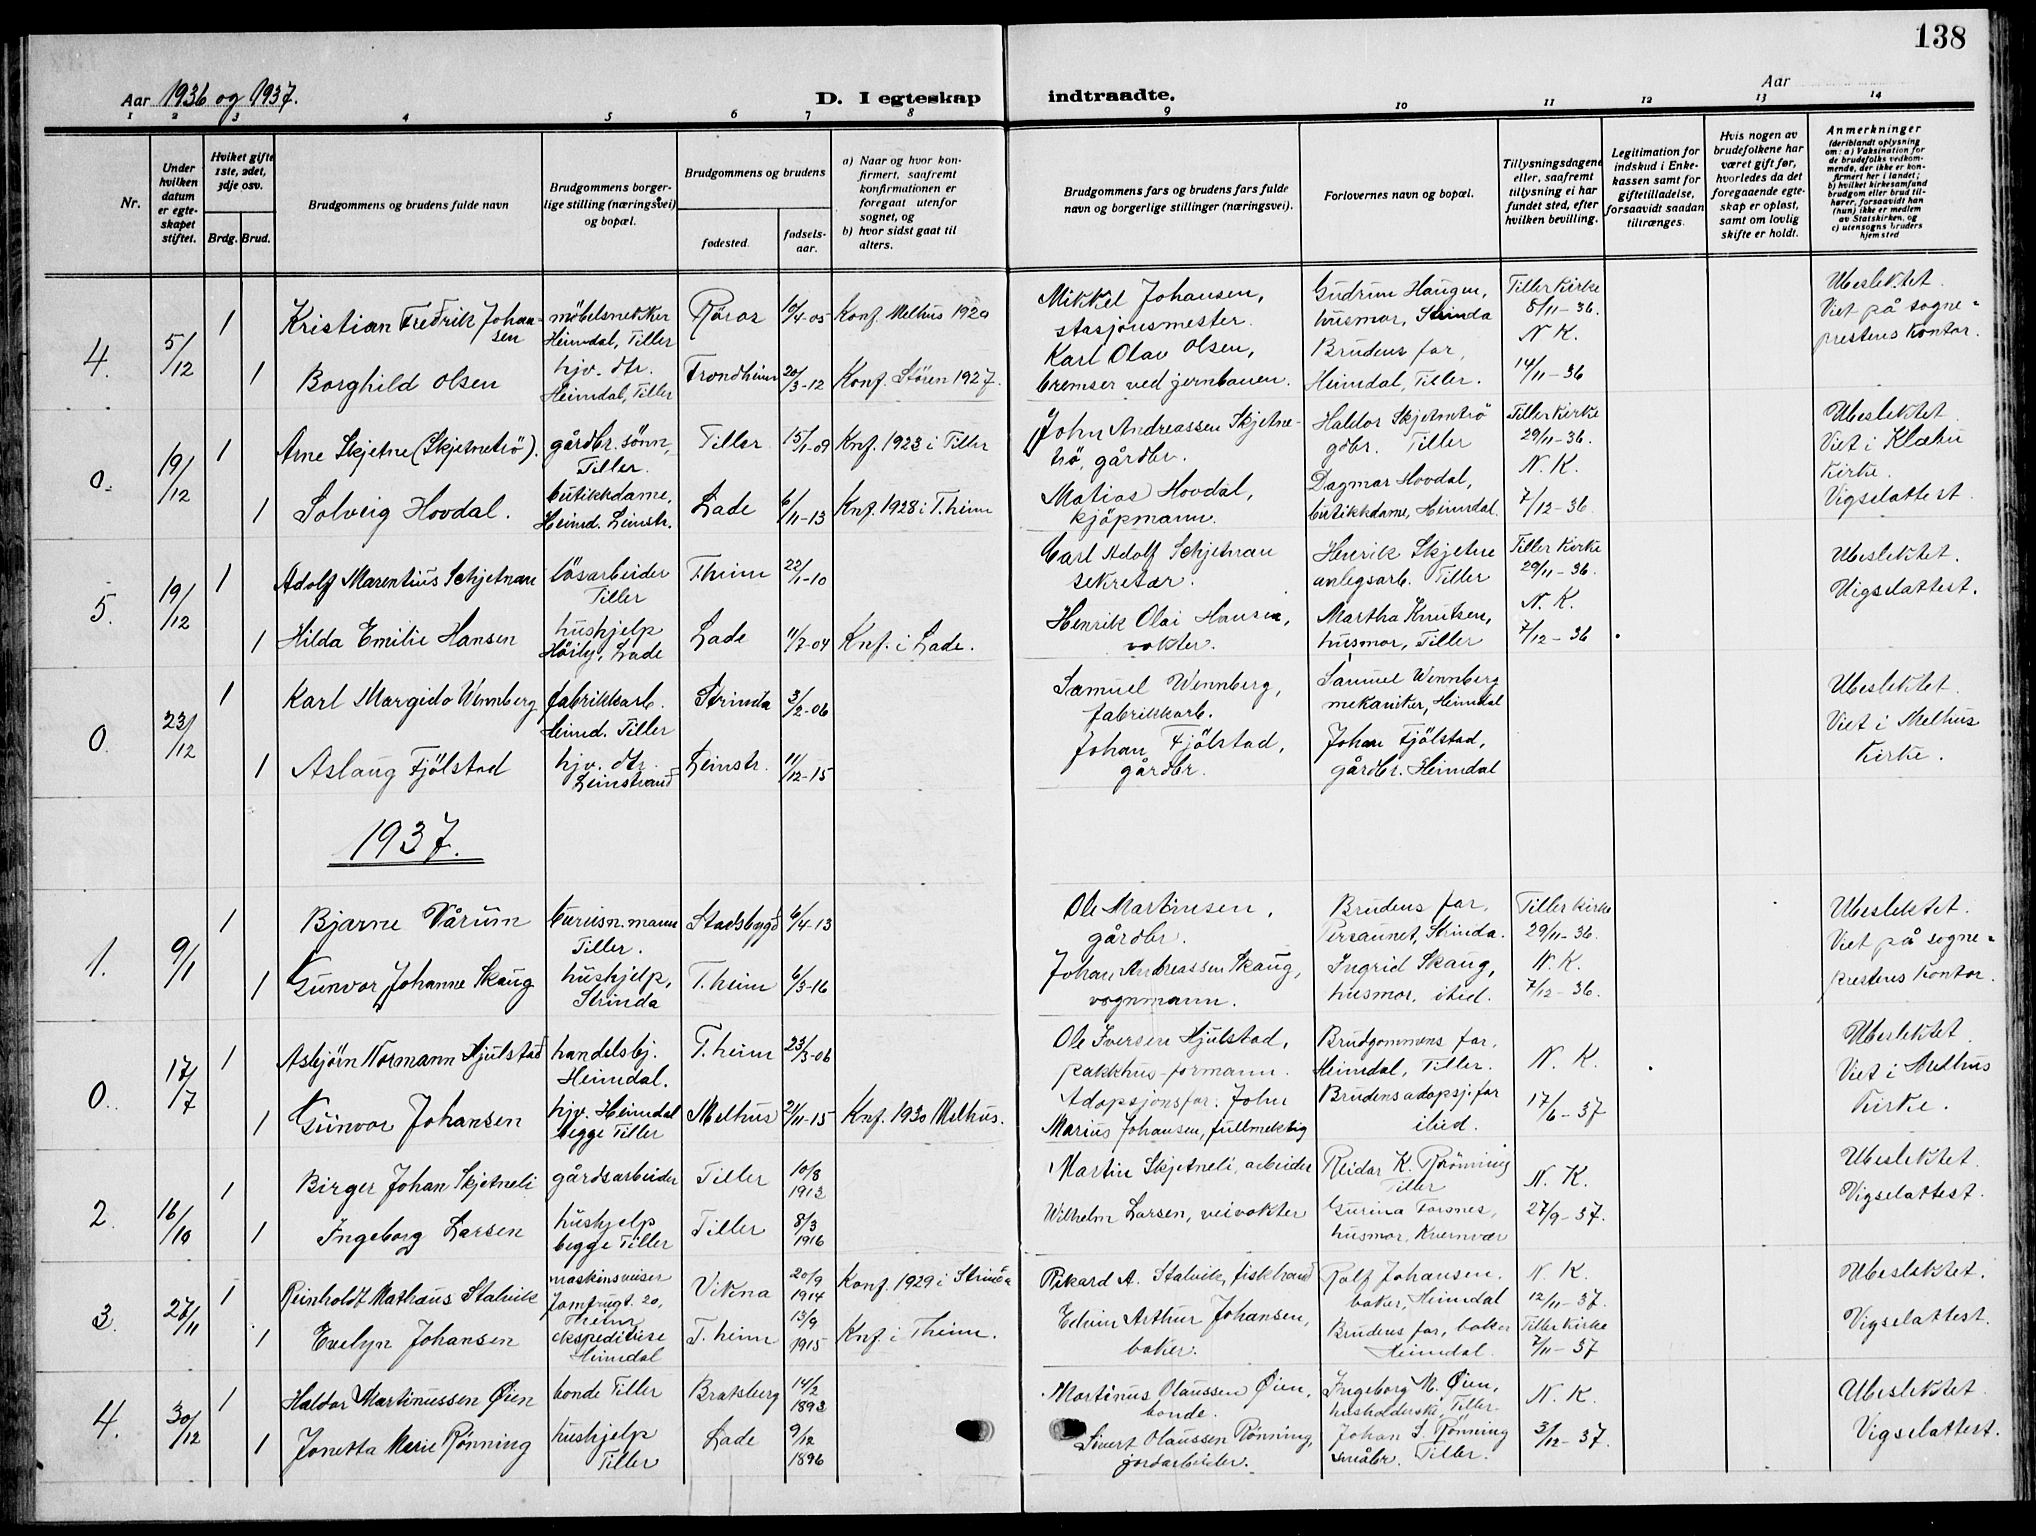 138
Aar 1936 og 1937.
D. I egteskap indtraadte.
Aar
1 2 3 4 5 6 7 8 9 10 11 12 13 14
Nr.
Under hvilken datum er egteskapet stiftet.
Hvilket gifte 1ste, 2det, 3dje osv.
Brdg. Brud.
Brudgommens og brudens fulde navn
Brudgommens borgerlige stilling (næringsvei) og bopæl.
Brudgommens og brudens
fødested.
fødselsaar.
a) Naar og hvor konfirmert, saafremt konfirmationen er foregaat utenfor sognet, og
b) hvor sidst gaat til alters.
Brudgommens fars og brudens fars fulde navn og borgerlige stillinger (næringsvei).
Forlovernes navn og bopæl.
Tillysningsdagene eller, saafremt tillysning ei har fundet sted, efter hvilken bevilling.
Legitimation for indskud i Enkekassen samt for giftetilladelse, forsaavidt saadan tiltrænges.
Hvis nogen av brudefolkene har været gift før, hvorledes da det foregaaende egteskap er opløst, samt om lovlig skifte er holdt.
Anmerkninger
(deriblandt oplysning om: a) Vaksination for de brudefolks vedkommende, der ikke er konfirmert her i landet;
b) hvilket kirkesamfund brudgom eller brud tilhører, forsaavidt han (hun) ikke er medlem av Statskirken, og
c) utensogns bruders hjemsted
4. 5/12
1 Kristian Fredrik Johansen møbelsnekker Heimdal, Tiller Röros 10/4-05 Konf. Melhus 1920 Mikkel Johansen, stasjonsmester. Gudrun Haugen, husmor, Strinda Tiller Kirke 8/11-36. N. K. Ubeslektet. Viet på sogneprestens kontor.
1 Borghild Olsen hjv. dtr. Heimdal, Tiller Trondheim 20/3-12 Konf. Stören 1927. Karl Olav Olsen, bremser ved jernbanen. Brudens far, Heimdal, Tiller. 14/11-36
0. 19/12
1 Arne Skjetne (Skjetnetrö). gårdbr. sönn, Tiller. Tiller 15/1-09 Knf. 1923 i Tiller John Andreassen Skjetnetrö, gårdbr. Haldor Skjetnetrö gdbr. Tiller Tiller Kirke 29/11-36. N. K. Ubeslektet Viet i Klæbu Kirke. Vigselattest
1 Solveig Hovdal. butikkdame, Heimd. Leinstr. Lade 6/11-13 Knf. 1928 i T.heim Matias Hovdal, kjöpmann. Dagmar Hovdal, butikkdame, Heimdal. 7/12-36.
5. 19/12
1 Adolf Marentius Schjetnan lösarbeider Tiller T.heim 22/1-10 Carl Adolf Schjetnan sekretær. Henrik Skjetne anlegsarb. Tiller Tiller Kirke 29/11-36. N. K. Ubeslektet. Vigselattest.
1 Hilda Emilie Hansen hushjelp Lade Lade 11/7-04 Knf. i Lade. Henrik Olai Hansen, vokter. Martha Knutsen, husmor, Tiller 7/12-36
0. 23/12
1 Karl Margido Wennberg fabrikkarb. Heimd. Tiller Strinda 3/2-06 Samuel Wennberg, fabrikkarb. Samuel Wennberg mekaniker, Heimdal Ubeslektet. Viet i Melhus Kirke.
1 Aslaug Fjölstad hjv. dtr. Leinstrand Leinstr. 11/12-15 Johan Fjölstad, gårdbr. Johan Fjölstad, gårdbr. Heimdal
1937.
1. 9/1
1 Bjarne Vårum bureisn.mann Tiller. Stadsbygd 6/4-13 Ole Martinsen, gårdbr. Brudens far, Persaunet, Strinda. Tiller Kirke 29/11-36. N. K. Ubeslektet. Viet på sogneprestens kontor.
1 Gunvor Johanne Skaug hushjelp, Strinda T.heim 6/3-16 Johan Andreassen Skaug, vognmann. Ingrid Skaug, husmor, ibid. 7/12-36.
0. 17/7
1 Asbjörn Normann Hjulstad handelsbj. Heimdal. T.heim 23/3-06 Ole Iversen Hjulstad, pakkhus-formann. Brudgommens far, Heimdal, Tiller. N. K. Ubeslektet Viet i Melhus Kirke.
1 Gunvor Johansen hjv. Heimdal begge Tiller Melhus 2/11-15 Knf. 1930 Melhus. Adopsjonsfar: John Marius Johansen, fullmektig Brudens adopsj.far ibid. 17/6-37
2. 16/10
1 Birger Johan Skjetneli gårdsarbeider Tiller 10/8 1912 Martin Skjetneli, arbeider Reidar K. Rönning Tiller N. K. Ubeslektet. Vigselattest.
1 Ingeborg Larsen hushjelp begge Tiller Tiller 8/3 1916 Wilhelm Larsen, veivokter Gurina Forsnes, husmor, Kvernvær 27/9-37.
3. 27/11
1 Reinholdt Mathæus Stalvik maskinsveiser Jomfrugt. 20, T.heim Vikna 20/9 1914 Konf. 1929 i Strinda Rikard A. Stalvik, fiskhand Rolf Johansen, baker, Heimdal N. K. 12/11-37. Ubeslektet. Vigselattest.
1 Evelyn Johansen ekspeditrise Heimdal T.heim 13/9 1915 Knf. i T.heim. Edvin Arthur Johansen, baker. Brudens far, baker Heimdal. Tiller Kirke 7/11-37
4. 30/12
1 Haldor Martinussen Øien bonde Tiller Bratsberg 14/2 1893 Martinus Olaussen Øien, bonde. Ingeborg M. Øien, husholderske, Tiller N. K. Ubeslektet Vigselattest.
1 Jonetta Marie Rønning hushjelp Tiller Lade 9/12 1896 Sivert Olaussen Rønning, jordarbeider. Johan S. Rønning småbr. Tiller. 3/12-37.